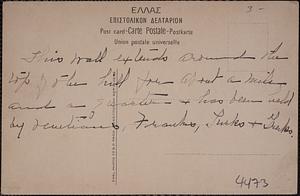 3 -
ΕΛΛΑΣ
ΕΠΙΣΤΟΛΙΚΟΝ ΔΕΛΤΑΡΙΟΝ
Post card-Carte Postale-Postkarte
Union postale universelle
This wall extends around the
top of the hill for about a mile
and a quarter & has been held
by Venetians, Franks, Turks & Greeks.
4473